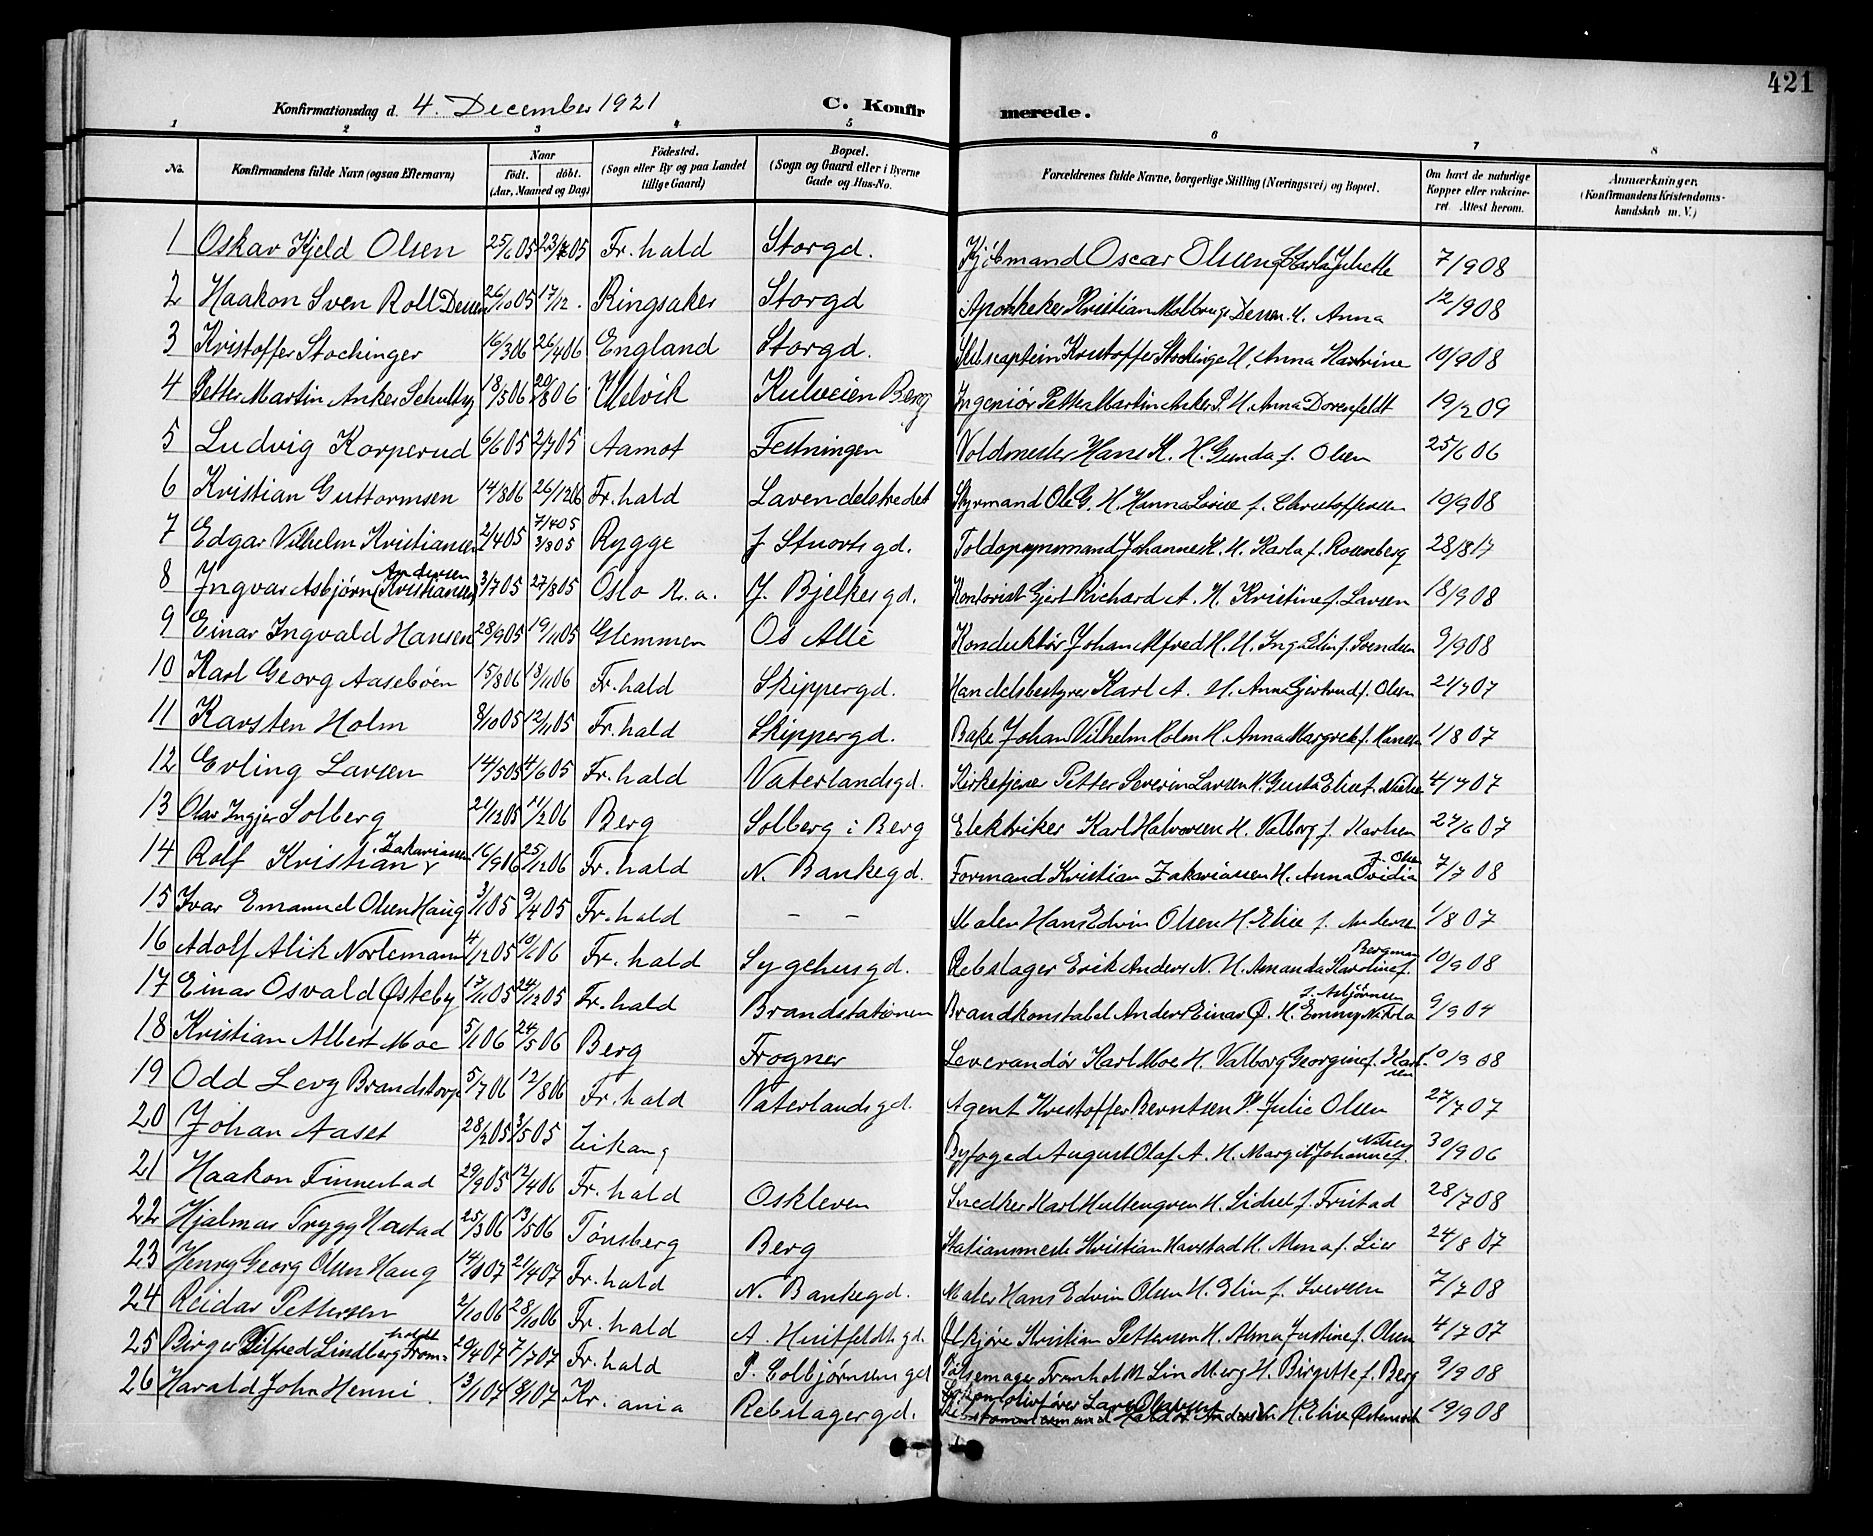 421
Konfirmationsdag d. 4. December 1921 C. Konfir merede.
1 2 3 4 5 6 7 8
No. Konfirmandens fulde Navn (ogsaa Efternavn) Naar født. døbt. (Aar, Maaned og Dag) Fødested. (Sogn eller By og paa Landet tillige Gaard) Bopæl. (Sogn og Gaard eller i Byerne Gade og Hus-No. Forældrenes fulde Navne, borgerlige Stilling (Næringsvei) og Bopæl. Om havt de naturlige Kopper eller vakcineret. Attest herom. Anmærkninger. (Konfirmandens Kristendomskundskab m. V.)
1 Oskar Kjeld Olsen 25/6 05 23/7 05 Fr. hald Storgd. Kjøbmand Oscar Olsen 7/9 08
2 Haakon Sven Roll 26/10 05 17/12. Ringsaker Storgd Apotheker Kristian H. Anna 12/9 08
3 Kristoffer Stochinger 16/3 06 26/4 06 England Storgd. Kristoffer H. Anna 10/9 08
4 Petter Martin Anker Schultz 18/5 06 20/8 06 Kulveien Berg Ingeniør Petter Martin Anker S. H. Anna Dorenfeldt 19/2 09
5 Ludvig Korperud 6/6 05 2/7 05 Aamot Festningen Voldmester Hans K. H. Gunda f. Olsen 25/6 06
6 Kristian Guttormsen 14/8 06 26/12 06 Fr. hald Lavendelstredet Styrmand Ole G. H. Hanna Lovise f. Christoffersen 10/9 08
7 Edgar Vilhelm Kristiansen 2/4 05 7/4 05 3/3 05 Rygge J Stuorts gd. Toldopsynsmand Johannes K. H. Karla f. Rosenberg 28/8 17
8 Ingvar Asbjørn (Kristiansen) Andersen 3/7 05 27/8 05 Oslo Kr. a. J. Bjelkes gd. Kontorist Gjert Richard A. H. Kristine f. Larsen 18/9 08
9 Einar Ingvald Hansen 28/9 05 19/11 05 Glemmen Os Allé Konduktør Johan Alfred H. H. Inga Elin f. Svendsen 9/9 08
10 Karl Georg Aasebøen 15/8 06 13/11 06 Fr. hald Skippergd. Handelsbestyrer Karl A. H. Anna Gjertrud f. Olsen 21/7 07
11 Karsten Holm 8/10 05 12/11 05 Fr. hald Skippergd. Bake Johan Vilhelm Holm H. Anna Margrete f. Hansen 1/8 07
12 Erling Larsen 14/5 05 4/6 05 Fr. hald Vaterlandsgd. Kirketjener Petter Severin Larsen H. f. 4/7 07
13 Olav Ingjer Solberg 21/12 05 11/2 06 Berg Solberg i Berg Elektriker Karl Halvorsen H. Valborg f. Karlsen 27/6 07
14 Rolf Kristian Zakariassen 16/9 06 25/12 06 Fr. hald N. Bankegd. Formand Kristian Zakariassen H. Anna Ovidia f. Olsen 7/7 08
15 Ivar Emanuel Olsen Haug 3/1 05 9/4 05 Fr. hald – – Maler Hans Edvin Olsen H. Elise f. 1/8 07
16 Adolf Alik Nortemann 4/12 05 10/6 06 Fr. hald Sygehusgd. Rebslager Erik Anders N. H. Amanda Karoline f. Bergman 10/9 08
17 Einar Osvald Østeby 17/11 05 24/12 05 Fr. hald Brandstationen Brandkonstabel Anders Einar Ø. H. Emmy f. Asbjørnsen 9/9 04
18 Kristian Albert Moe 5/1 06 24/5 06 Berg Frogner Leverandør Karl Moe H. Valborg Georgine f. Karlsen 10/9 08
19 Odd Levy Brandstorp 5/7 06 12/8 06 Fr. hald Vaterlandsgd. Agent Kristoffer Berntsen H. Julie Olsen 27/7 07
20 Johan Aaset 28/2 05 3/5 05 Byfoged August Olaf A. H. Margit Johanne f. 30/9 06
21 Haakon Finnestad 29/9 05 12/4 06 Fr. hald Oskleven Snedker Karl Hultengren H. f. 28/7 08
22 Hjalmar Trygg Havstad 25/3 06 13/5 06 Tønsberg Berg Stationsmester Kristian Havstad H. Alma f. Lier 24/8 07
23 Henry Georg Olsen Haug 14/1 07 21/4 07 Fr. hald N. Bankegd. Maler Hans Edvin Olsen H. Elin f. Iversen 7/7 08
24 Reidar Pettersen 2/10 06 28/10 06 Fr. hald A. Huitfeldts gd. Kristian Pettersen H. Alma Justine f. Olsen 4/7 07
25 Birger Vilfred Lindberg Fromholdt 20/4 07 7/7 07 Fr. hald P. Colbjørnsens gd Pølsemager H. Birgitte f. Berg 9/9 08
26 Harald John Henni. 13/1 07 18/1 07 Kr. ania Rebslagergd. Lars H. Elise 19/9 08